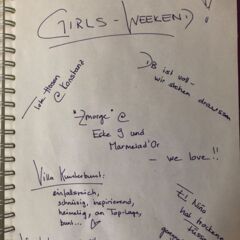 GIRLS-WEEKEND!
Tote Hosen
@ Konstanz
DB ist voll -
wir stehen draussen
"Zmorge" @
Ecke 9 und
Marmelad'Or
- we love!!
Villa Kunterbunt:
einfallsreich,
schnüsig, inspirierend,
heimelig, an Top-Lage,
bunt...
El Niño
hat trockene